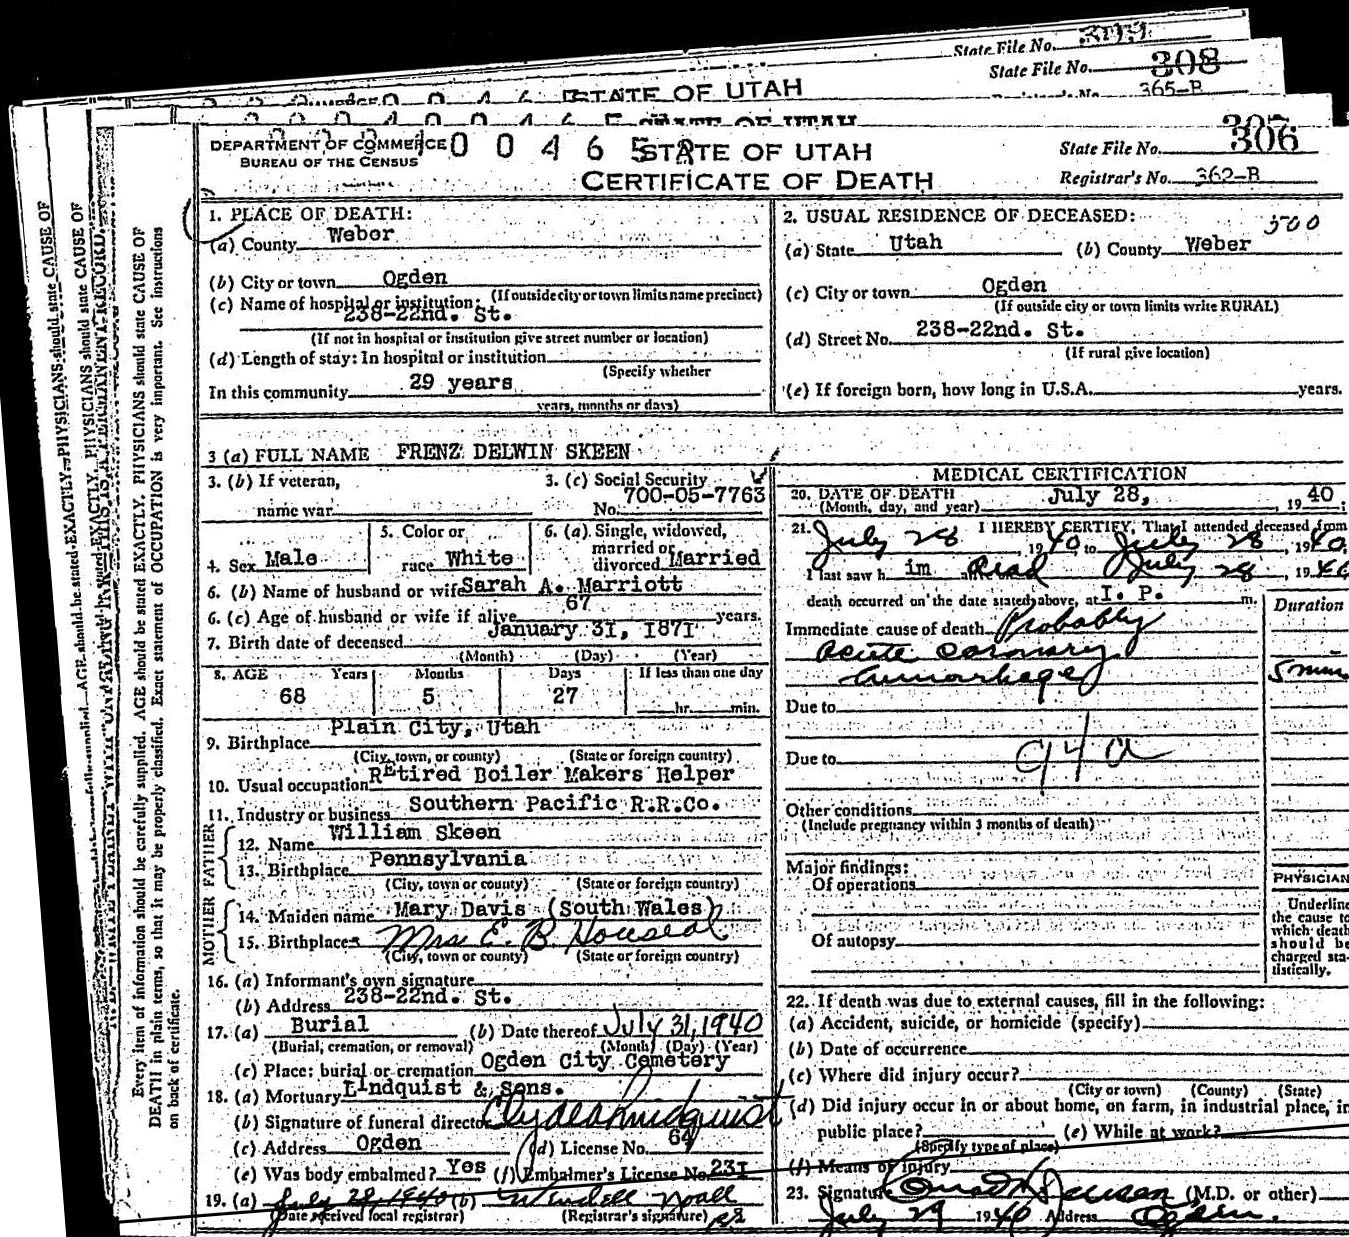 State File No. 309
State File No. 308
365-B
STATE OF UTAH
307
DEPARTMENT OF COMMERCE
BUREAU OF THE CENSUS
0 0 4 6 5
STATE OF UTAH
CERTIFICATE OF DEATH
State File No. 306
Registrar's No. 362-B
1. PLACE OF DEATH:
(a) County Weber
(b) City or town Ogden
(If outside city or town limits name precinct)
(c) Name of hospital or institution:
238-22nd. St.
(If not in hospital or institution give street number or location)
(d) Length of stay: In hospital or institution
(Specify whether
In this community 29 years
years, months or days)
2. USUAL RESIDENCE OF DECEASED:
500
(a) State Utah (b) County Weber
(c) City or town Ogden
(If outside city or town limits write RURAL)
(d) Street No. 238-22nd. St.
(If rural give location)
(e) If foreign born, how long in U.S.A. years.
3 (a) FULL NAME FRENZ DELWIN SKEEN
3. (b) If veteran,
name war
3. (c) Social Security
No. 700-05-7763
4. Sex Male
5. Color or
race White
6. (a) Single, widowed,
married or
divorced Married
6. (b) Name of husband or wife Sarah A. Marriott
6. (c) Age of husband or wife if alive 67 years.
7. Birth date of deceased January 31, 1871
(Month) (Day) (Year)
8. AGE Years Months Days If less than one day
68 5 27 hr. min.
9. Birthplace Plain City, Utah
(City, town, or county) (State or foreign country)
10. Usual occupation REtired Boiler Makers Helper
11. Industry or business Southern Pacific R.R.Co.
FATHER
12. Name William Skeen
13. Birthplace Pennsylvania
(City, town or county) (State or foreign country)
MOTHER
14. Maiden name Mary Davis (South Wales)
15. Birthplace Mrs E. B. Houseal
(City, town or county) (State or foreign country)
16. (a) Informant's own signature
(b) Address 238-22nd. St.
17. (a) Burial (b) Date thereof July 31, 1940
(Burial, cremation, or removal) (Month) (Day) (Year)
(c) Place: burial or cremation Ogden City Cemetery
18. (a) Mortuary LIndquist & Sons.
(b) Signature of funeral director Clyde Lindquist
(c) Address Ogden (d) License No. 64
(e) Was body embalmed? Yes (f) Embalmer's License No. 231
19. (a) July 29, 1940 (b) Wendell Noall
(Date received local registrar) (Registrar's signature)
MEDICAL CERTIFICATION
20. DATE OF DEATH July 28, 1940;
(Month, day, and year)
21. I HEREBY CERTIFY, That I attended deceased from
July 28, 1940 to July 28, 1940,
I last saw h im alive on dead July 28, 1940
death occurred on the date stated above, at I. P. m.
Duration
Immediate cause of death Probably
acute coronary
hemorrhage 5 min
Due to
94a
Due to
Other conditions
(Include pregnancy within 3 months of death)
Major findings:
Of operations
Of autopsy
PHYSICIAN
Underline
the cause to
which death
should be
charged sta-
tistically.
22. If death was due to external causes, fill in the following:
(a) Accident, suicide, or homicide (specify)
(b) Date of occurrence
(c) Where did injury occur?
(City or town) (County) (State)
(d) Did injury occur in or about home, on farm, in industrial place, in
public place? (e) While at work?
(Specify type of place)
(f) Means of injury
23. Signature (M.D. or other)
July 29 1940 Address Ogden.
Every item of information should be carefully supplied. AGE should be stated EXACTLY. PHYSICIANS should state CAUSE OF
DEATH in plain terms, so that it may be properly classified. Exact statement of OCCUPATION is very important. See instructions
on back of certificate.